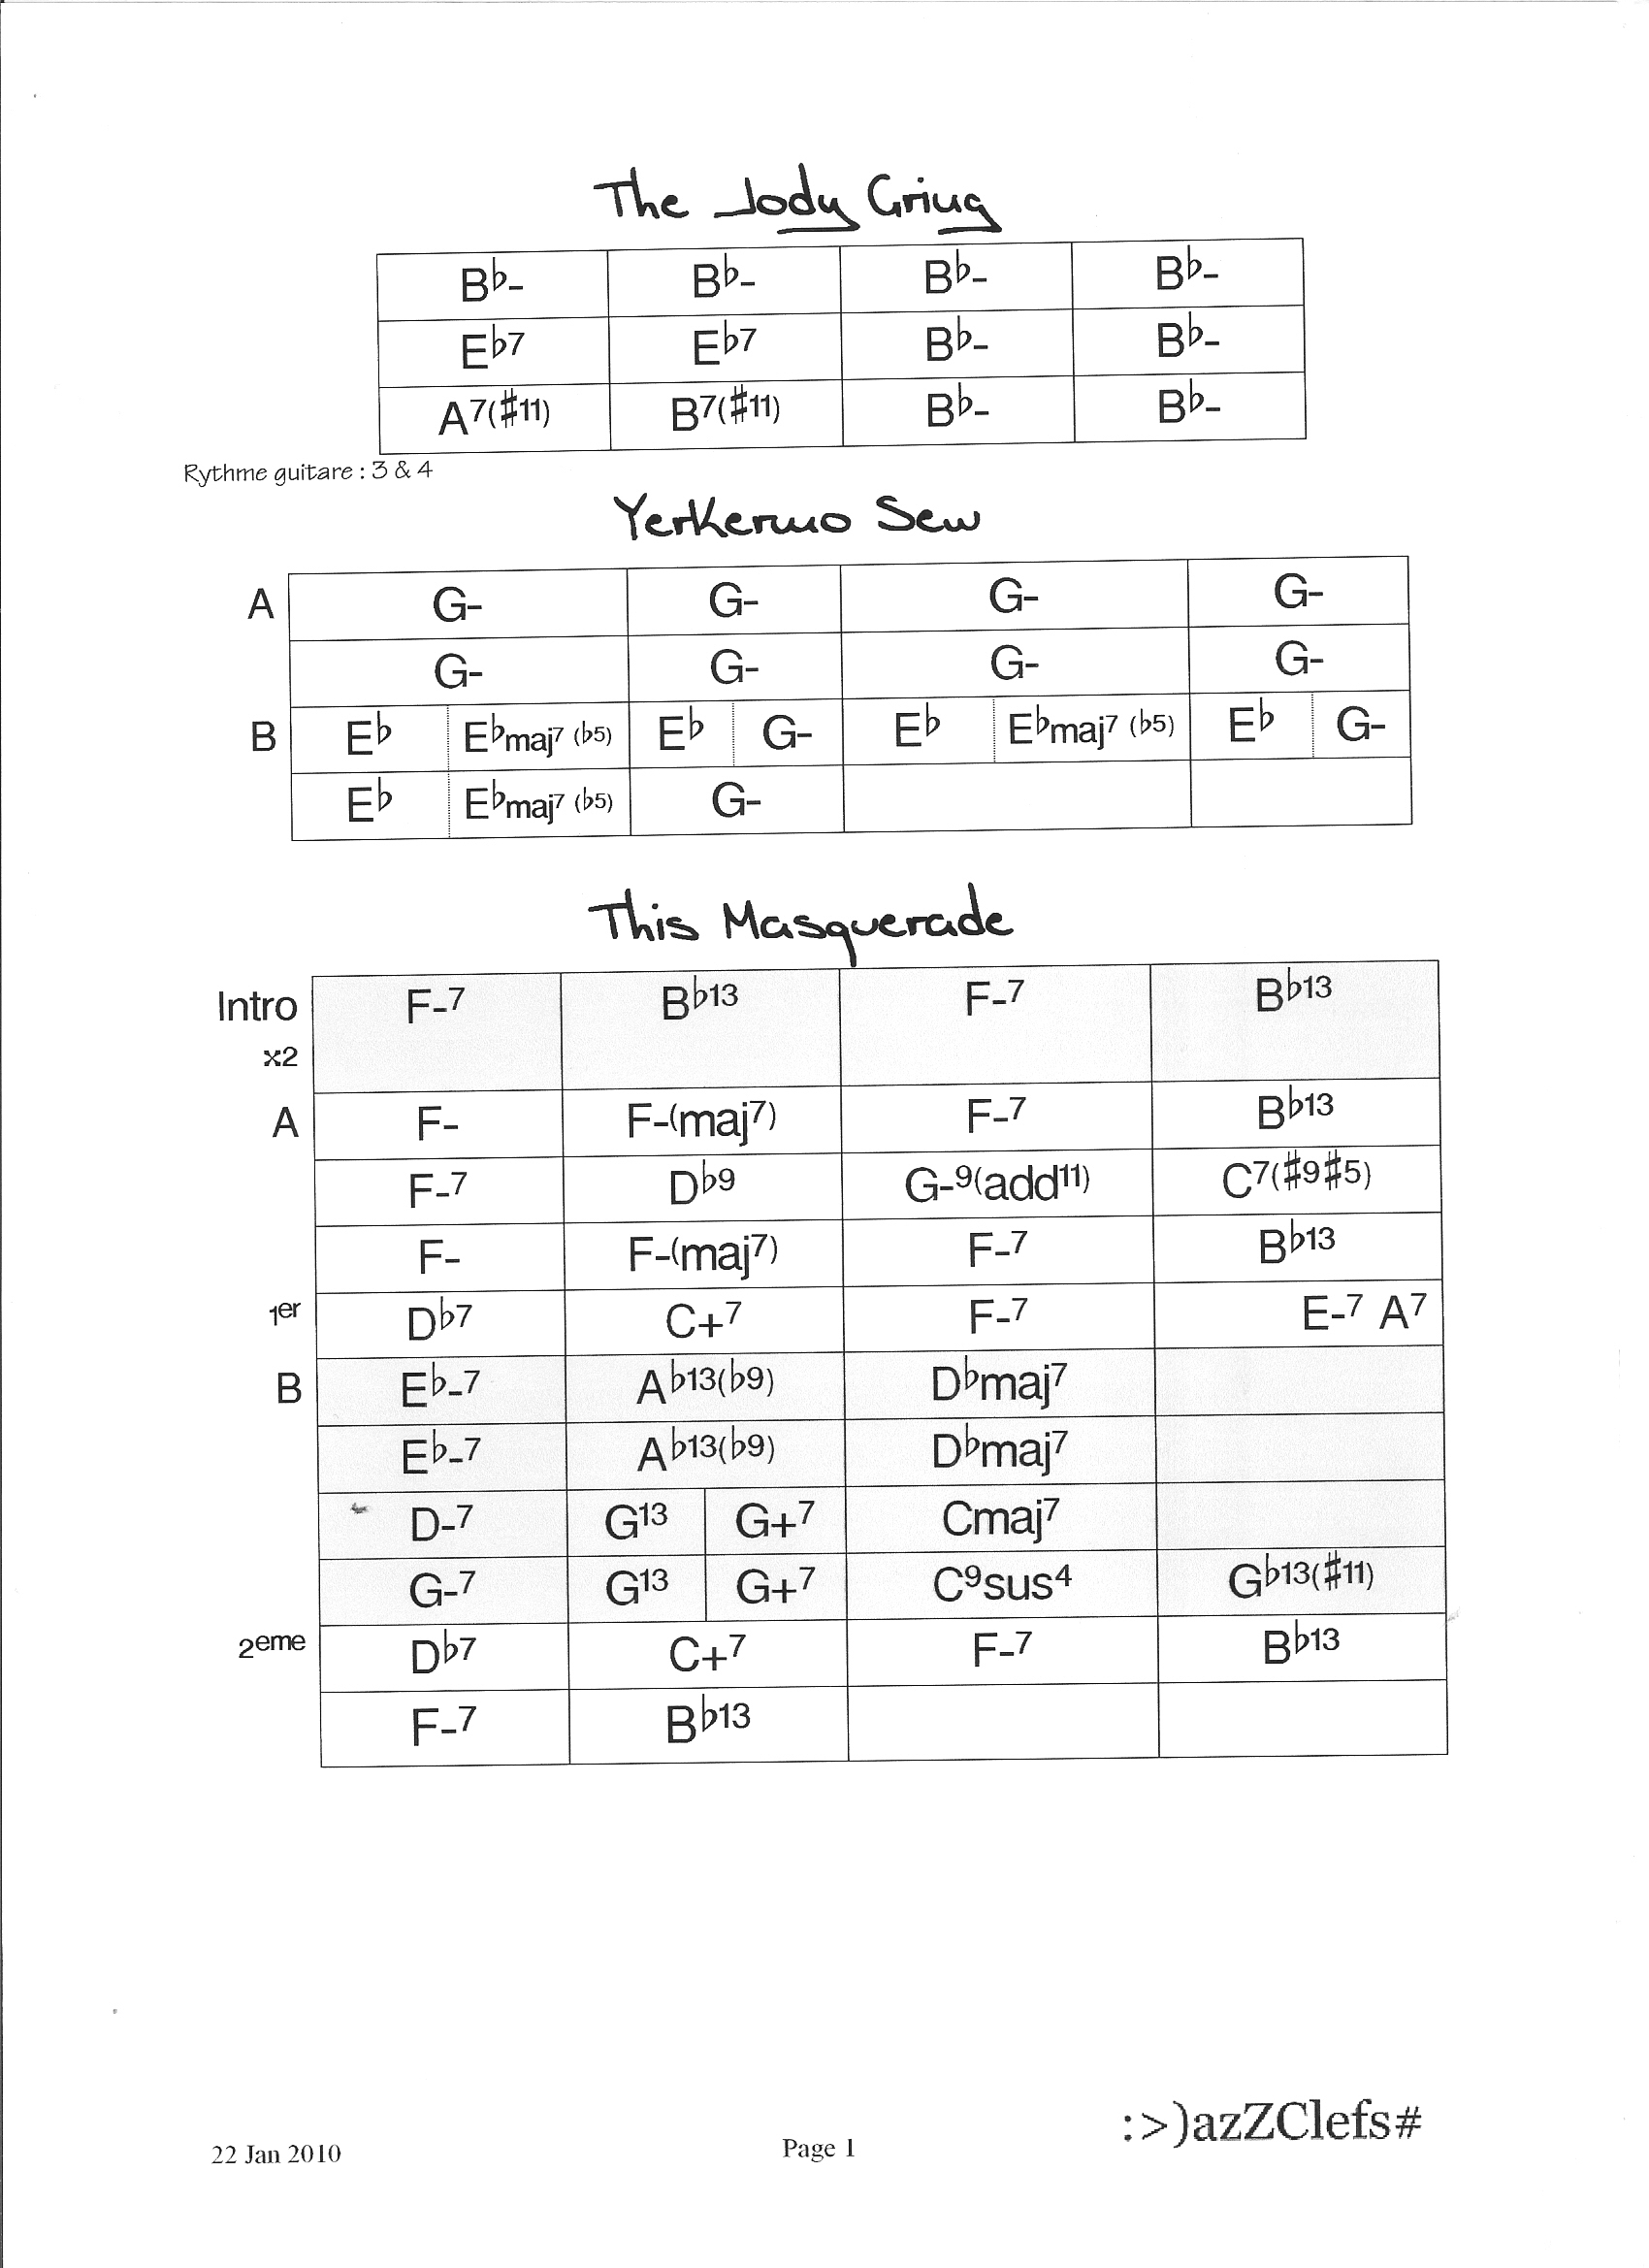 The Jody Griug
B♭- B♭- B♭- B♭-
E♭7 E♭7 B♭- B♭-
A7(♯11) B7(♯11) B♭- B♭-
Rythme guitare : 3 & 4
Yerkermo Sew
A G- G- G- G-
G- G- G- G-
B E♭ E♭maj7 (♭5) E♭ G- E♭ E♭maj7 (♭5) E♭ G-
E♭ E♭maj7 (♭5) G-
This Masquerade
Intro F-7 B♭13 F-7 B♭13
x2
A F- F-(maj7) F-7 B♭13
F-7 D♭9 G-9(add11) C7(♯9♯5)
F- F-(maj7) F-7 B♭13
1er D♭7 C+7 F-7 E-7 A7
B E♭-7 A♭13(♭9) D♭maj7
E♭-7 A♭13(♭9) D♭maj7
D-7 G13 G+7 Cmaj7
G-7 G13 G+7 C9sus4 G♭13(♯11)
2eme D♭7 C+7 F-7 B♭13
F-7 B♭13
:>)azZClefs#
22 Jan 2010 Page 1